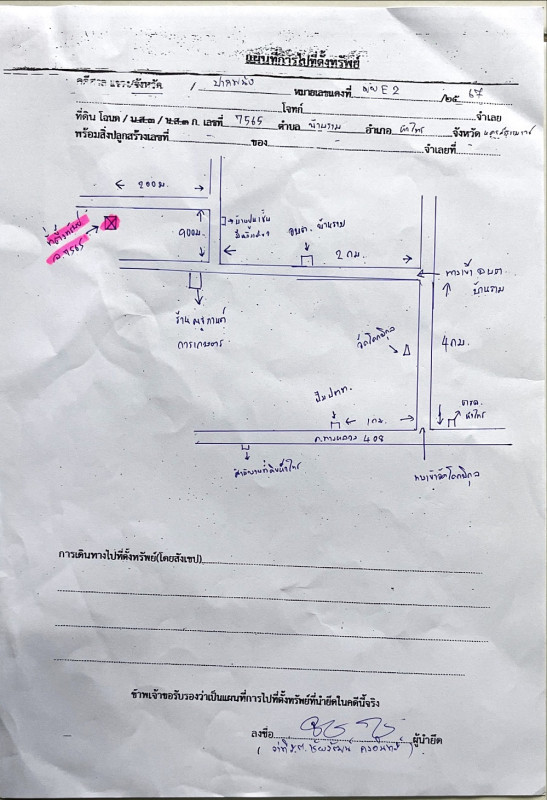 แผนที่การไปที่ตั้งทรัพย์
จังหวัด / ปากพนัง หมายเลขแดงที่ ผบ E2 /๒๕ 67
โจทก์ จำเลย
ที่ดิน โฉนด / น.ส.๓ / น.ส.๓ ก. เลขที่ 7565 ตำบล บ้านราม อำเภอ หัวไทร จังหวัด นครศรีธรรมราช
พร้อมสิ่งปลูกสร้างเลขที่ - ของ - จำเลยที่ -
200 ม.
ที่ตั้งทรัพย์
ฉ.7565
900 ม.
อบต. บ้านราม
2 กม.
ทางเข้า อบต
บ้านราม
ร้าน
การเกษตร
วัดโคกพิกุล
4 กม.
ปั๊ม ปตท.
1 กม.
หัวไทร
ถ.ทางหลวง 408
สำนักงานที่ดินหัวไทร
ทางเข้าวัดโคกพิกุล
การเดินทางไปที่ตั้งทรัพย์(โดยสังเขป)
ข้าพเจ้าขอรับรองว่าเป็นแผนที่การไปที่ตั้งทรัพย์ที่นำยึดในคดีนี้จริง
ลงชื่อ ผู้นำยึด